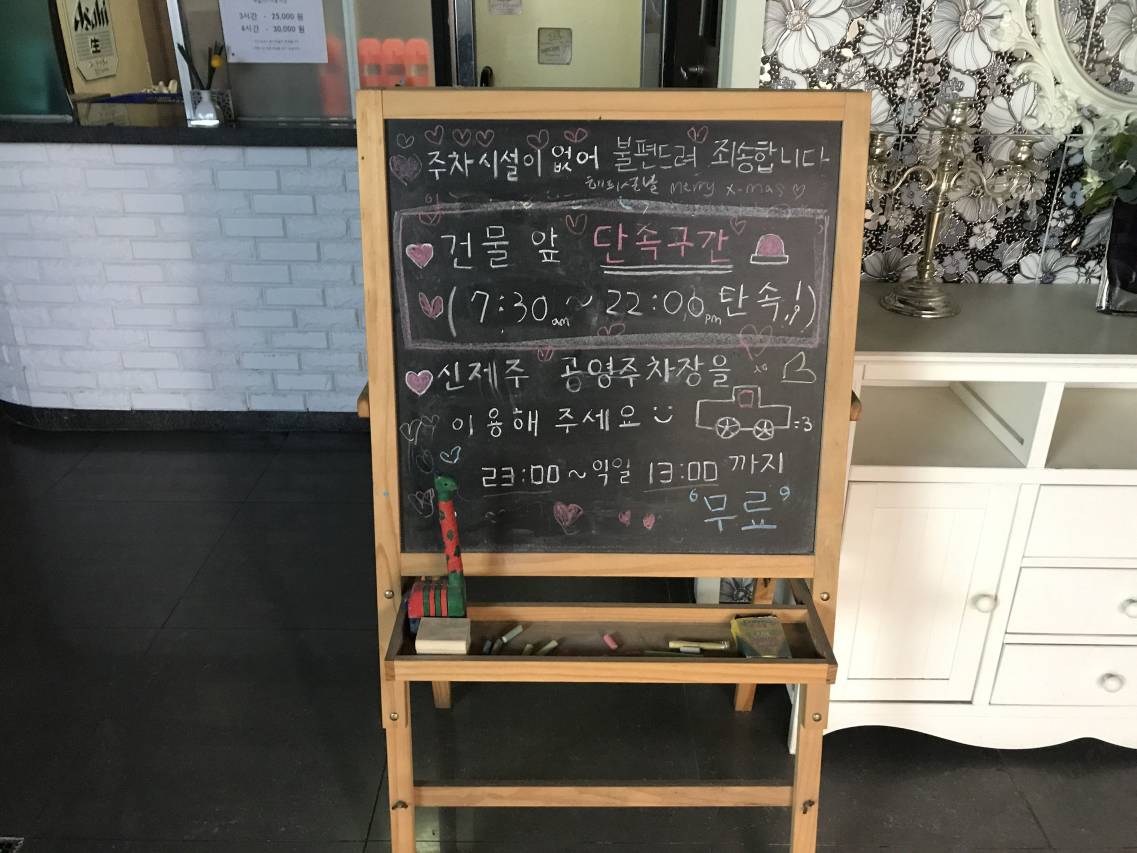 Asahi
生
3시간 - 25,000 원
6시간 - 30,000 원
주차시설이 없어 불편드려 죄송합니다
merry x-mas
건물 앞 단속구간
(7:30am ~ 22:00pm 탄속!)
신제주 공영주차장을
이용해 주세요
=3
23:00 ~ 익일 13:00 까지
'무료'